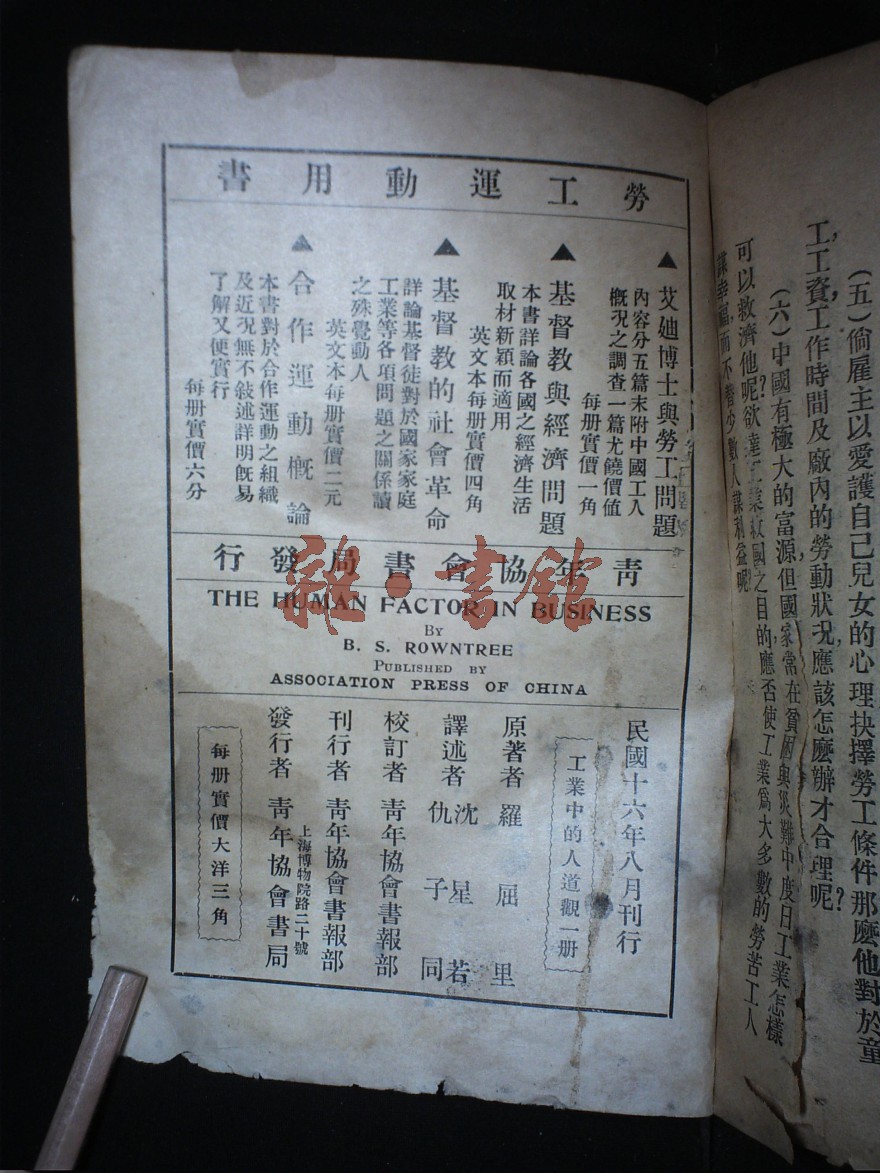 (五)倘雇主以愛護自己兒女的心理抉擇勞工條件那麽他對於童
工,工資,工作時間及廠內的勞動狀況應該怎麽辦才合理呢?
(六)中國有極大的富源但國家常在貧困與災難中度日工業怎樣
可以救濟他呢?欲達工業救國之目的應否使工業爲大多數的勞苦工人
謀幸福,而不替少數人謀利益呢?
勞工運動用書
▲艾廸博士與勞工問題
內容分五篇末附中國工人
概況之調查一篇尤饒價値
每册實價一角
▲基督教與經濟問題
本書詳論各國之經濟生活
取材新穎而適用
英文本每册實價四角
▲基督教的社會革命
詳論基督徒對於國家家庭
工業等各項問題之關係讀
之殊覺動人
英文本每册實價二元
▲合作運動概論
本書對於合作運動之組織
及近況無不敍述詳明旣易
了解又便實行
每册實價六分
靑年協會書局發行
雜·書館
THE HUMAN FACTOR IN BUSINESS
BY
B. S. ROWNTREE
PUBLISHED BY
ASSOCIATION PRESS OF CHINA
民國十六年八月刊行
工業中的人道觀一册
原著者 羅屈里
譯述者 沈星若
仇子同
校訂者 靑年協會書報部
刊行者 靑年協會書報部
上海博物院路二十號
發行者 靑年協會書局
每册實價大洋三角